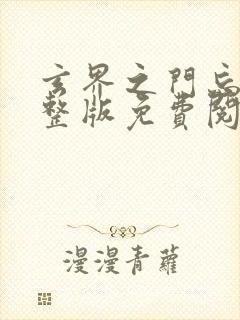 玄界之門忘
整版免費閱
漫漫青蘿